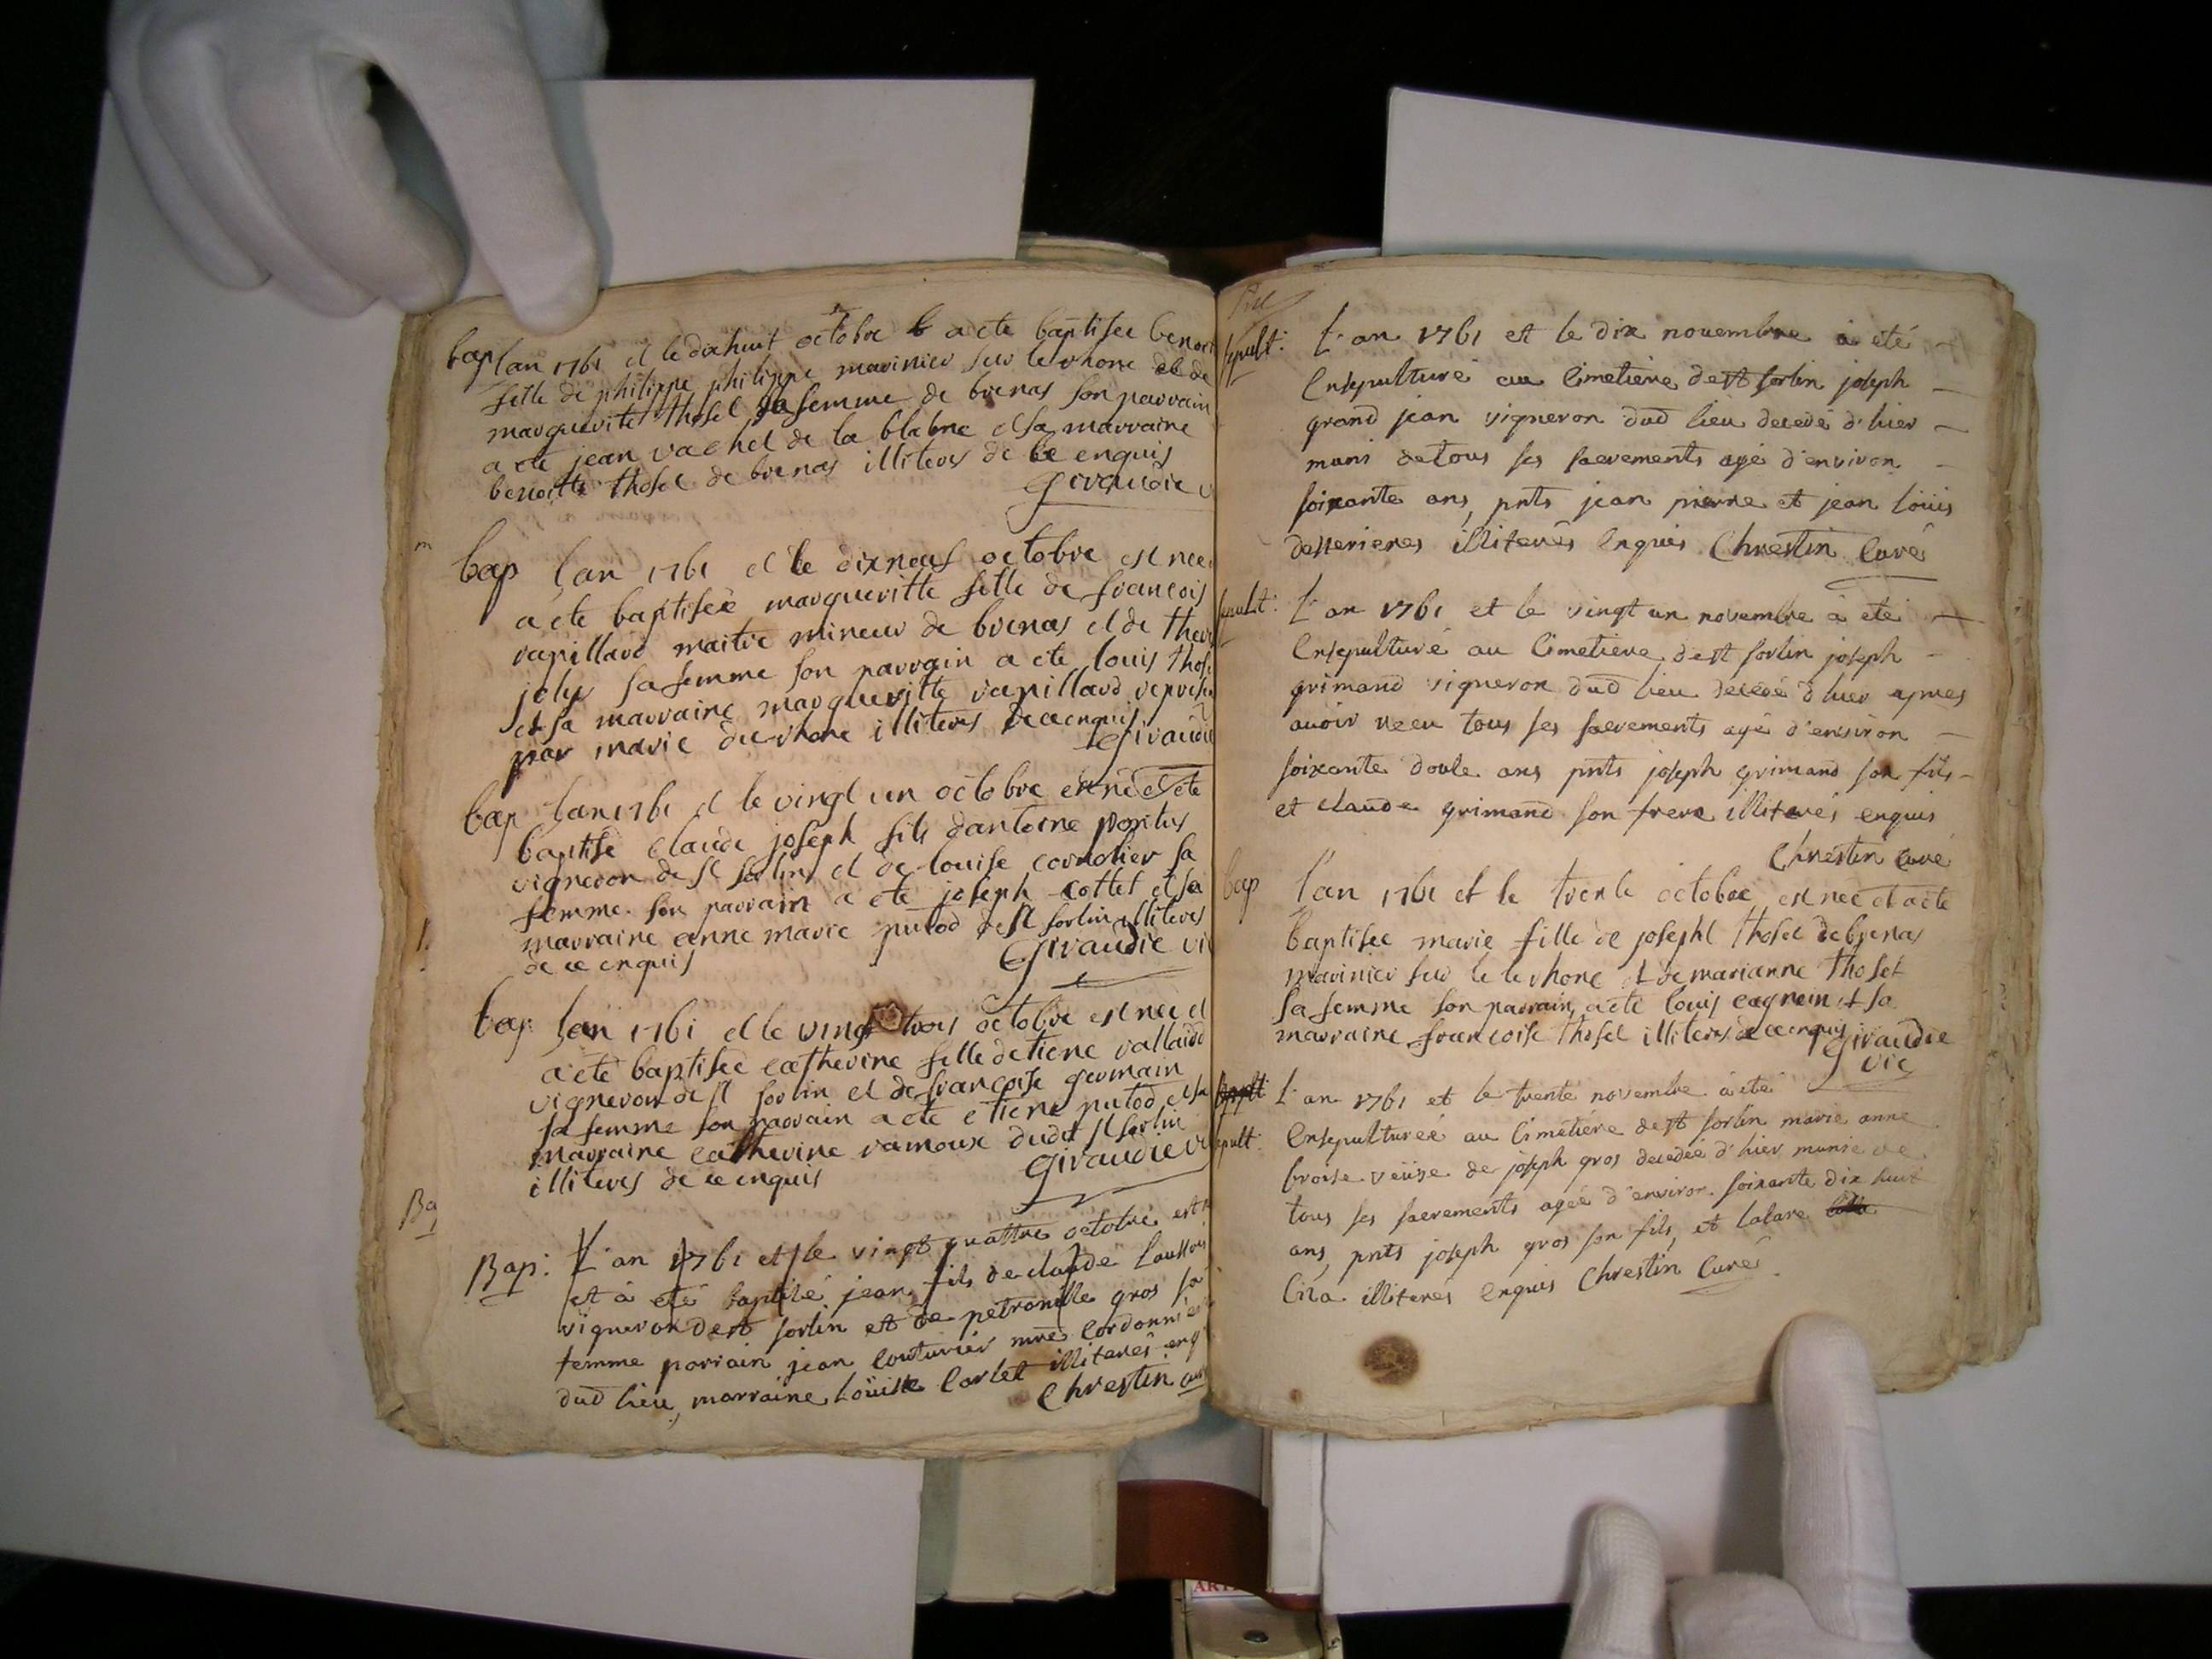 bap lan 1761 et le dixhuit octobre a ete baptisee benoi
fille de philippe philippe marinier sur le rhone et de
marguerite thosel sa femme de brenas son parrain
a ete jean vachel de la blabne et sa marraine
benoitte thosel de brenas illiteres de ce enquis
Giraudie v
bap lan 1761 et le dixneuf octobre est nee
a ete baptiseé margueritte fille de francois
rapillard maitre mineur de brenas et de ther
joly sa femme son parrain a ete louis thos
et sa marraine margueritte rapillard repres
par marie du rhone illiteres de ce enquis
Giraudi
bap lan 1761 et le vingt un octobre est né et ete
baptisé claude joseph fils dantoine pontus
vigneron de st sorlin et de louise cornotier sa
femme son parrain a ete joseph cottet et sa
marraine anne marie putod de st sorlin illiteres
de ce enquis Giraudie vi
bap lan 1761 et le vingt trois octobre est nee et
a ete baptisée catherine fille detiene vallaud
vigneron de st sorlin et de francoise germain
sa femme son parrain a ete etiene putod et sa
marraine catherine ramoux dudit st sorlin
illiteres de ce enquis Giraudie v
Bap: L'an 1761 et le vingt quattre octobre est
et à eté baptisé jean fils de claude
vigneron de st sorlin et de petronille gros sa
femme parrain jean couturier mre cordonnie
dud lieu, marraine Loüise Carlet illiterés enq
Chrestin cur
sepult: L'an 1761 et le dix novembre à eté
Ensepulturé au Cimetiere de st sorlin joseph
grand jean vigneron dud lieu decedé d'hier
muni de tous ses sacrements agé d'environ
soixante ans, pnts jean pierre et jean loüis
desserieres illiterés Enquis Chrestin Curé
sepult: L'an 1761 et le vingt un novembre à eté
Ensepulturé au Cimetiere de st sorlin joseph
grimand vigneron dud lieu decedé d'hier apres
avoir receu tous ses sacrements agé d'environ
soixante douze ans pnts joseph grimand son fils
et claude grimand son frere illiterés enquis
Chrestin curé
bap lan 1761 et le trente octobre est nee et a ete
baptisee marie fille de joseph thosel de brenas
marinier sur le le rhone et de marianne thosel
sa femme son parrain a ete louis cagnin et sa
marraine francoise thosel illiteres de ce enquis Giraudie
vic
L'an 1761 et le trente novembre à eté
sepult: Ensepulturée au Cimetiére de st sorlin marie anne
broise veüse de joseph gros decedée d'hier munie de
tous ses sacrements ageé d'environ soixante dix huit
ans, pnts joseph gros son fils, et lazare
illiterés enquis Chrestin Curé